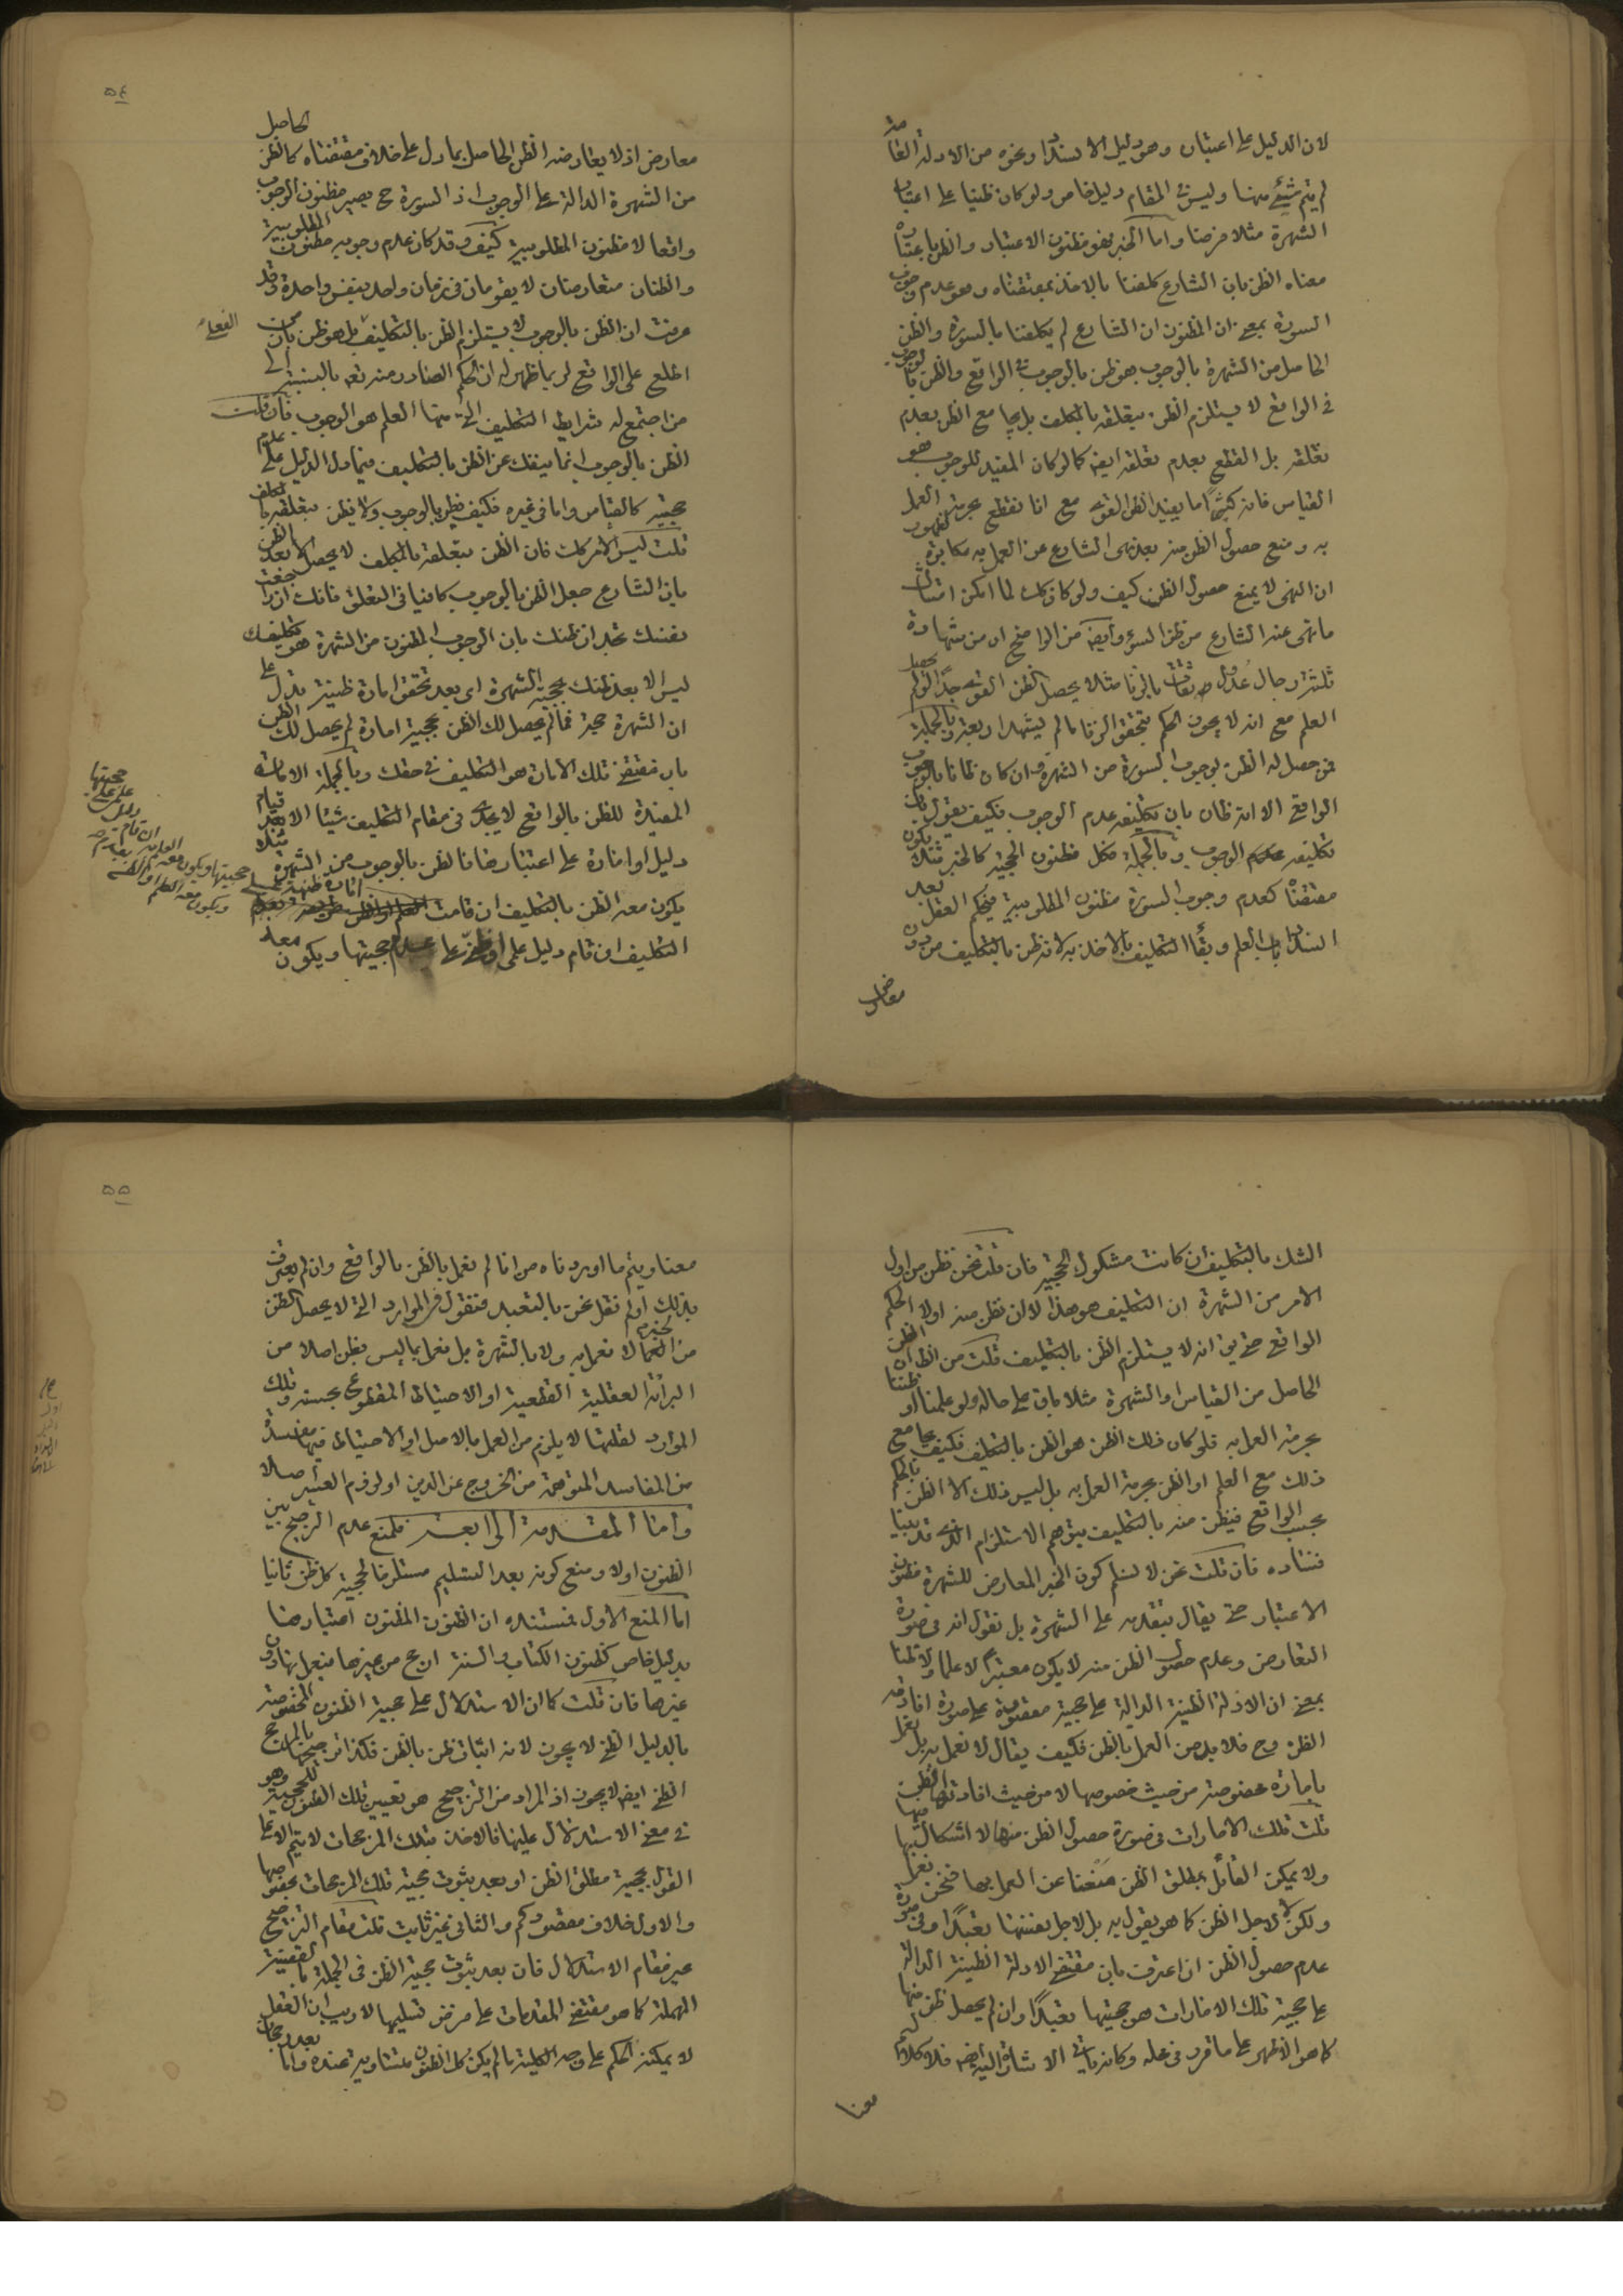 لان الدليل على اعتباره وهو دليل الانسداد ونحوه من الادلة العامة
لم يتم شيئ منها وليس في المقام دليل خاص ولو كان ظنيا على اعتبار
الشهرة مثلا فرضنا واما الخبر فهو مظنون الاعتبار والظن باعتباره
معناه الظن بان الشارع كلفنا بالاخذ بمقتضاه وهو عدم وجوب
السورة بمعنى ان المظنون ان الشارع لم يكلفنا بالسورة والظن
الحاصل من الشهرة بالوجوب هو ظن بالوجوب في الواقع والظن بالوجوب
في الواقع لا يستلزم الظن بتعلقه بالمكلف بل يجامع الظن بعدم
تعلقه بل القطع بعدم تعلقه ايضا كما لو كان المفيد للوجوب هو
القياس فانه كثيرا ما يفيد الظن القوي مع انا نقطع بحرمة العمل
به ومنع حصول الظن منه بعد نهى الشارع عن العمل به مكابرة لظهور
ان النهى لا يمنع حصول الظن كيف ولو كان كك لما امكن امتثال
ما نهى عنه الشارع من ظن السوء وايضا من الواضح ان من شهادة
ثلثة رجال عدول ثقات بالزنا مثلا يحصل الظن القوى جدا لو لم يحصل
العلم مع انه لا يجوز الحكم بتحقق الزنا ما لم يشهد اربعة وبالجملة
فمن حصل له الظن بوجوب السورة من الشهرة وان كان ظانا بالوجوب
الواقعي الا انه ظان بان تكليفه عدم الوجوب فكيف يقول بان
تكليفه الوجوب وبالجملة فكل مظنون الحجية كالخبر مثلا يكون
مقتضاه كعدم وجوب السورة مظنون المطلوبية فيحكم العقل بعد
انسداد باب العلم وبقاء التكليف بالاخذ به لانه ظن بالتكليف من دون
معارض
۵۴
معارض اذ لا يعارضه الظن الحاصل بما دل على خلاف مقتضاه كالظن الحاصل
من الشهرة الدالة على الوجوب اذ السورة ح يصير مظنون الوجوب
واقعا لا مظنون المطلوبية كيف وقد كان عدم وجوبه مظنون المطلوبية
والظنان متعارضان لا يقومان في زمان واحد بنفس واحدة وقد
عرفت ان الظن بالوجوب لا يستلزم الظن بالتكليف بل هو ظن بان من
اطلع على الواقع لربما ظهر له ان الحكم الصادر منه تع بالنسبة الى
من اجتمع له شرايط التكليف التي منها العلم هو الوجوب فان قلت
الظن بالوجوب انما ينفك عن الظن بالتكليف فيما دل الدليل على عدم
حجيته كالقياس واما في غيره فكيف يظن بالوجوب ولا يظن بتعلقه بالمكلف
قلت ليس الامر كك فان الظن بتعلقه بالمكلف لا يحصل الا بعد الظن
بان الشارع جعل الظن بالوجوب كافيا في التعلق فانك ان راجعت
نفسك تجد ان ظنك بان الوجوب المظنون من الشهرة هو تكليفك
ليس الا بعد ظنك بحجية الشهرة اى بعد تحقق امارة ظنية تدل على
ان الشهرة حجة فما لم يحصل لك الظن بحجية امارة لم يحصل لك الظن
بان مقتضى تلك الامارة هو التكليف في حقك وبالجملة الامارة
المفيدة للظن بالواقع لا يجدى في مقام التكليف شيئا الا بعد قيام
دليل او امارة على اعتبارها فالظن بالوجوب من الشهرة مثلا
يكون معه الظن بالتكليف ان قامت امارة ظنية على
حجيتها ويكون معه العلم
التكليف ان قام دليل علمى او ظنى على عدم حجيتها ويكون معه
۵۵
الشك بالتكليف ان كانت مشكوك الحجية فان قلت نحن نظن من اول
الامر من الشهرة ان التكليف هو هذا لا ان نظن منه اولا الحكم
الواقعي حتى يق انه لا يستلزم الظن بالتكليف قلت من الظاهر ان الظن
الحاصل من القياس او الشهرة مثلا باق على حاله ولو علمنا او ظننا
بحرمة العمل به فلو كان ذلك الظن هو الظن بالتكليف فكيف يجامع
ذلك مع العلم او الظن بحرمة العمل به بل ليس ذلك الا الظن بالحكم
بحسب الواقع فيظن منه بالتكليف بتوهم الاستلزام الذي قد بينا
فساده فان قلت نحن لا نسلم كون الخبر المعارض للشهرة مظنون
الاعتبار حتى يقال بتقدمه على الشهرة بل نقول انه في صورة
التعارض وعدم حصول الظن منه لا يكون معتبرا لا علما ولا ظنا
بمعنى ان الادلة الظنية الدالة على حجيته مقصورة على صورة افادته
الظن وح فلا بد من العمل بالظن فكيف يقال لا نعمل به بل نعمل
بامارة مخصوصة من حيث خصوصها لا من حيث افادتها الظن
قلت تلك الامارات في صورة حصول الظن منها لا اشكال فيها
ولا يمكن القائل بمطلق الظن منعنا عن العمل بها فنحن نعمل بها
ولكن لا لاجل الظن كما هو يقول به بل لاجل نفسها تعبدا وفي صورة
عدم حصول الظن ان اعترفت بان مقتضى الادلة الظنية الدالة
على حجية تلك الامارات هو حجيتها تعبدا وان لم يحصل ظن منها
كما هو الاظهر على ما قرر في محله وكانه ياتي الاشارة اليه ايضا فلا كلام لهم
معنا
معنا ويتم ما اوردناه من انا لم نعمل بالظن بالواقع وان لم يعترف
بذلك او لم نقل نحن بالتعبد فنقول في الموارد التي لا يحصل الظن
من الخبر لا نعمل به ولا بالشهرة بل نعمل بما ليس بظن اصلا من
البرائة العقلية القطعية او الاحتياط المقطوع بحسنه وتلك
الموارد لقلتها لا يلزم من العمل بالاصل او الاحتياط فيها مفسدة
من المفاسد المتوهمة من الخروج عن الدين او لزوم العسر اصلا
واما المقدمة الرابعة فلمنع عدم الترجيح بين
الظنون اولا ومنع كونه بعد التسليم مستلزما لحجية كل ظن ثانيا
اما المنع الاول فمستنده ان الظنون المظنون اعتبارها
بدليل خاص كظنون الكتاب والسنة ارجح من غيرها فيعمل بها دون
غيرها فان قلت كما ان الاستدلال على حجية الظنون المخصوصة
بالدليل الظني لا يجوز لانه اثبات ظن بالظن فكذا ترجيحها بالمرجح
الظني ايضا لا يجوز اذ المراد من الترجيح هو تعيين تلك الظنون للحجية وهو
في معنى الاستدلال عليها فالاخذ بتلك المرجحات لا يتم الا على
القول بحجية مطلق الظن او بعد ثبوت حجية تلك المرجحات بخصوصها
والاول خلاف مقصودكم والثاني غير ثابت قلت مقام الترجيح
غير مقام الاستدلال فان بعد ثبوت حجية الظن في الجملة بالقضية
المهملة كما هو مقتضى المقدمات على فرض تسليمها لا ريب ان العقل
لا يمكنه الحكم على وجه الكلية ما لم يكن كل الظنون متساوية عنده واما